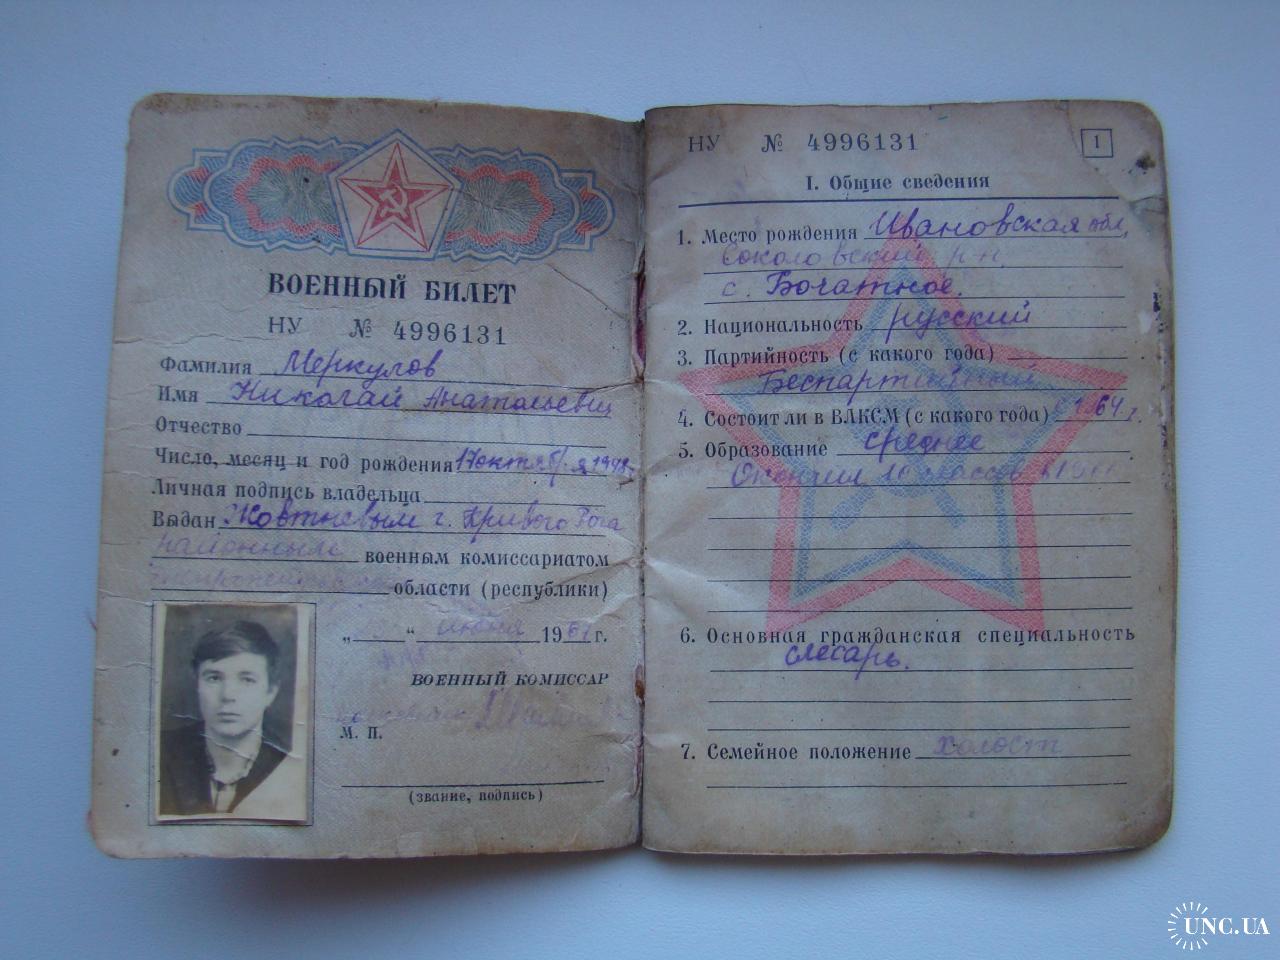 ВОЕННЫЙ БИЛЕТ
НУ № 4996131
Фамилия Меркулов
Имя Николай Анатольевич
Отчество
Число, месяц и год рождения 17 октября 1948 г.
Личная подпись владельца
Выдан Жовтневым г. Кривого Рога
районным военным комиссариатом
области (республики)
„ “ июня 1967 г.
ВОЕННЫЙ КОМИССАР
М. П.
(звание, подпись)
НУ № 4996131
1
I. Общие сведения
1. Место рождения Ивановская обл,
Соколовский р-н,
с. Богатное.
2. Национальность русский
3. Партийность (с какого года)
Беспартийный
4. Состоит ли в ВЛКСМ (с какого года) с 1964 г
5. Образование среднее
Окончил 10 классов в
6. Основная гражданская специальность
слесарь.
7. Семейное положение холост
UNC.UA